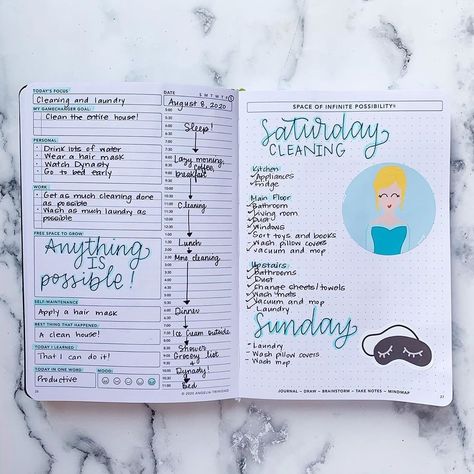 TODAY'S FOCUS
Cleaning and laundry
MY GAMECHANGER GOAL:
Clean the entire house!
PERSONAL
· Drink lots of water
· Wear a hair mask
· Watch Dynasty
· Go to bed early
WORK
· Get as much cleaning done
as possible
· Wash as much laundry as
possible
FREE SPACE TO GROW
Anything
IS
possible!
SELF-MAINTENANCE
Apply a hair mask
BEST THING THAT HAPPENED
A clean house!
TODAY I LEARNED
That I can do it!
TODAY IN ONE WORD:
MOOD:
Productive
DATE
S M T W T F S
August 8, 2020
Sleep!
Lazy morning,
coffee,
breakfast
Cleaning
Lunch
More cleaning
Dinner
Ice cream outside
Shower
Grocery list
+
Dynasty!
Bed
SPACE OF INFINITE POSSIBILITY®
Saturday
CLEANING
Kitchen
✓Appliances
✓Fridge
Main Floor
✓Bathroom
✓Living room
✓Dust
✓Windows
✓Sort toys and books
✓Wash pillow covers
✓Vacuum and mop
Upstairs
✓Bathrooms
✓Dust
✓Change sheets/towels
✓Wash mats
✓Vacuum and mop
✓Laundry
Sunday
- Laundry
- Wash pillow covers
- Wash mop
JOURNAL – DRAW – BRAINSTORM – TAKE NOTES – MINDMAP